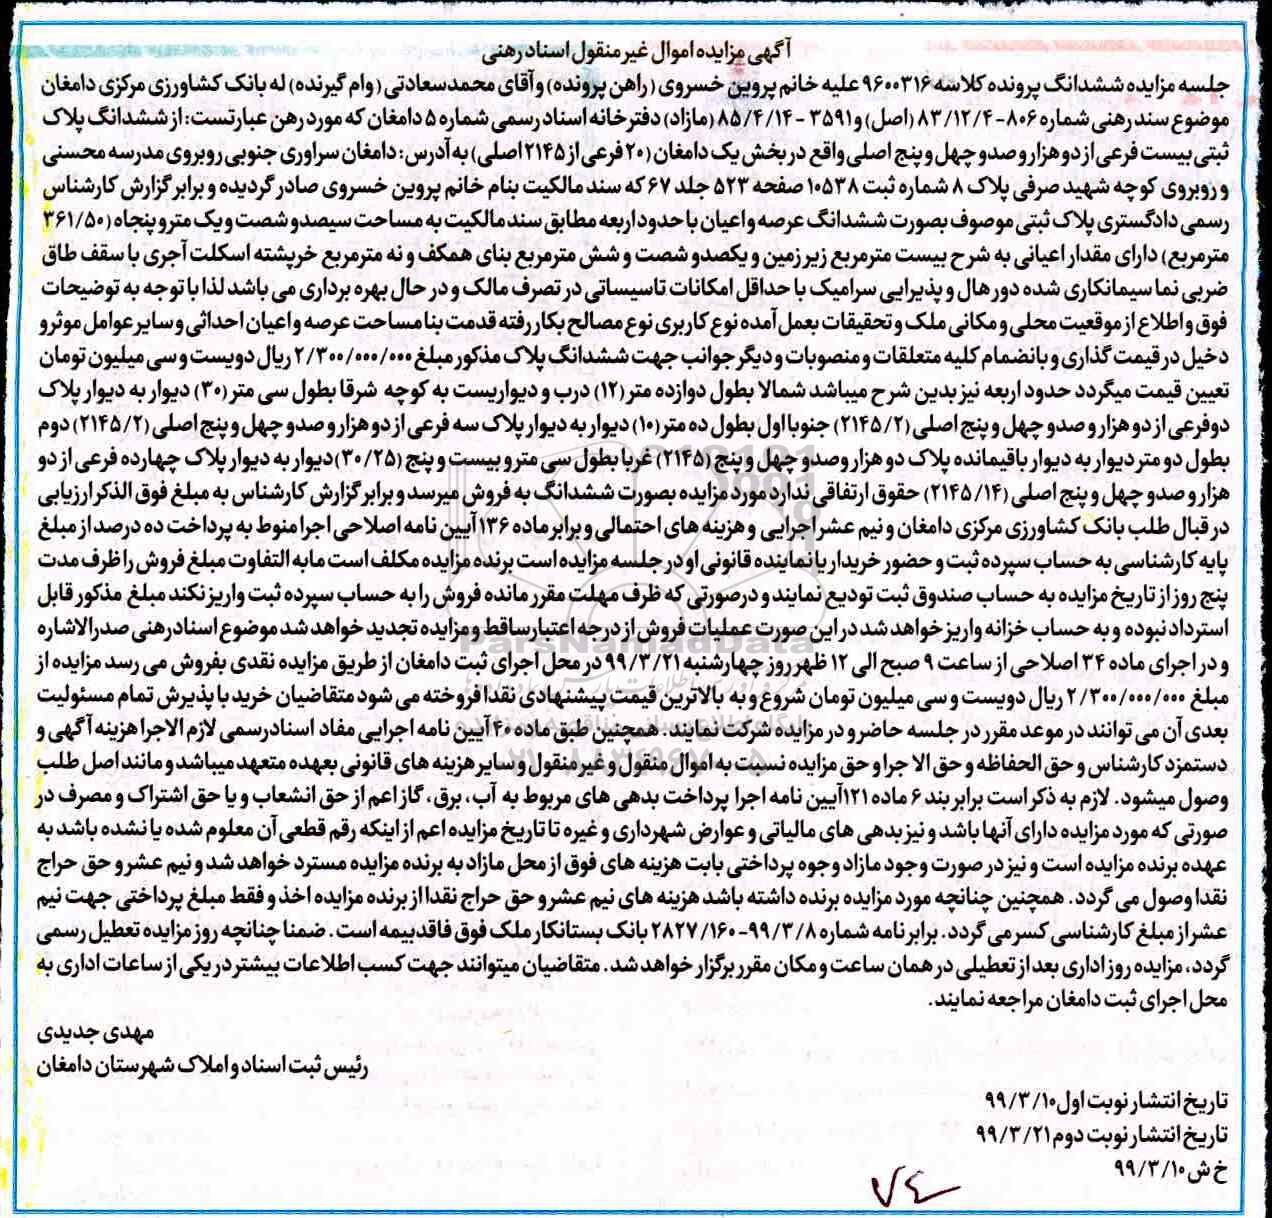 آگهی مزایده اموال غیر منقول اسناد رهنی
جلسه مزایده ششدانگ پرونده کلاسه ۹۶۰۰۳۱۶ علیه خانم پروین خسروی (راهن پرونده) و آقای محمد سعادتی (وام گیرنده) له بانک کشاورزی مرکزی دامغان
موضوع سند رهنی شماره ۸۰۶- ۸۳/۱۲/۴ (اصل) و ۳۵۹۱ - ۸۵/۴/۱۴ (مازاد) دفترخانه اسناد رسمی شماره ۵ دامغان که مورد رهن عبارتست: از ششدانگ پلاک
ثبتی بیست فرعی از دو هزار و صدو چهل و پنج اصلی واقع در بخش یک دامغان (۲۰ فرعی از ۲۱۴۵ اصلی) به آدرس: دامغان سراوری جنوبی روبروی مدرسه محسنی
و روبروی کوچه شهید صرفی پلاک ۸ شماره ثبت ۱۰۵۳۸ صفحه ۵۲۳ جلد ۶۷ که سند مالکیت بنام خانم پروین خسروی صادر گردیده و برابر گزارش کارشناس
رسمی دادگستری پلاک ثبتی موصوف بصورت ششدانگ عرصه و اعیان با حدود اربعه مطابق سند مالکیت به مساحت سیصدو شصت و یک متر و پنجاه (۳۶۱/۵۰
مترمربع) دارای مقدار اعیانی به شرح بیست مترمربع زیر زمین و یکصدو شصت و شش مترمربع بنای همکف و نه مترمربع خرپشته اسکلت آجری با سقف طاق
ضربی نما سیمانکاری شده دور هال و پذیرایی سرامیک با حداقل امکانات تاسیساتی در تصرف مالک و در حال بهره برداری می باشد لذا با توجه به توضیحات
فوق و اطلاع از موقعیت محلی و مکانی ملک و تحقیقات بعمل آمده نوع کاربری نوع مصالح بکار رفته قدمت بنا مساحت عرصه و اعیان احداثی و سایر عوامل موثر و
دخیل در قیمت گذاری و بانضمام کلیه متعلقات و منصوبات و دیگر جوانب جهت ششدانگ پلاک مذکور مبلغ ۲/۳۰۰/۰۰۰/۰۰۰ ریال دویست و سی میلیون تومان
تعیین قیمت میگردد حدود اربعه نیز بدین شرح میباشد شمالا بطول دوازده متر (۱۲) درب و دیواریست به کوچه شرقا بطول سی متر (۳۰) دیوار به دیوار پلاک
دوفرعی از دو هزار و صدو چهل و پنج اصلی (۲۱۴۵/۲) جنوبا اول بطول ده متر(۱۰) دیوار به دیوار پلاک سه فرعی از دو هزار و صدو چهل و پنج اصلی (۲۱۴۵/۲) دوم
بطول دو متر دیوار به دیوار باقیمانده پلاک دو هزار و صدو چهل و پنج (۲۱۴۵) غربا بطول سی متر و بیست و پنج (۳۰/۲۵) دیوار به دیوار پلاک چهارده فرعی از دو
هزار و صدو چهل و پنج اصلی (۲۱۴۵/۱۴) حقوق ارتفاقی ندارد مورد مزایده بصورت ششدانگ به فروش میرسد و برابر گزارش کارشناس به مبلغ فوق الذکر ارزیابی
در قبال طلب بانک کشاورزی مرکزی دامغان و نیم عشر اجرایی و هزینه های احتمالی و برابر ماده ۱۳۶ آیین نامه اصلاحی اجرا منوط به پرداخت ده درصد از مبلغ
پایه کارشناسی به حساب سپرده ثبت و حضور خریدار یا نماینده قانونی او در جلسه مزایده است برنده مزایده مکلف است مابه التفاوت مبلغ فروش را ظرف مدت
پنج روز از تاریخ مزایده به حساب صندوق ثبت تودیع نمایند و درصورتی که ظرف مهلت مقرر مانده فروش را به حساب سپرده ثبت واریز نکند مبلغ مذکور قابل
استرداد نبوده و به حساب خزانه واریز خواهد شد در این صورت عملیات فروش از درجه اعتبار ساقط و مزایده تجدید خواهد شد موضوع اسناد رهنی صدرالاشاره
و در اجرای ماده ۳۴ اصلاحی از ساعت ۹ صبح الی ۱۲ ظهر روز چهارشنبه ۹۹/۳/۲۱ در محل اجرای ثبت دامغان از طریق مزایده نقدی بفروش می رسد مزایده از
مبلغ ۲/۳۰۰/۰۰۰/۰۰۰ ریال دویست و سی میلیون تومان شروع و به بالاترین قیمت پیشنهادی نقدا فروخته می شود متقاضیان خرید با پذیرش تمام مسئولیت
بعدی آن می توانند در موعد مقرر در جلسه حاضر و در مزایده شرکت نمایند: همچنین طبق ماده ۴۰ آیین نامه اجرایی مفاد اسناد رسمی لازم الاجرا هزینه آگهی و
دستمزد کارشناس و حق الحفاظه و حق الا جرا و حق مزایده نسبت به اموال منقول و غیر منقول و سایر هزینه های قانونی بعهده متعهد میباشد و مانند اصل طلب
وصول میشود. لازم به ذکر است برابر بند ۶ ماده ۱۲۱ آیین نامه اجرا پرداخت بدهی های مربوط به آب، برق، گاز اعم از حق انشعاب و یا حق اشتراک و مصرف در
صورتی که مورد مزایده دارای آنها باشد و نیز بدهی های مالیاتی و عوارض شهرداری و غیره تا تاریخ مزایده اعم از اینکه رقم قطعی آن معلوم شده یا نشده باشد به
عهده برنده مزایده است و نیز در صورت وجود مازاد وجوه پرداختی بابت هزینه های فوق از محل مازاد به برنده مزایده مسترد خواهد شد و نیم عشر و حق حراج
نقدا وصول می گردد. همچنین چنانچه مورد مزایده برنده داشته باشد هزینه های نیم عشر و حق حراج نقدا از برنده مزایده اخذ و فقط مبلغ پرداختی جهت نیم
عشر از مبلغ کارشناسی کسر می گردد. برابر نامه شماره ۹۹/۳/۸-۲۸۲۷/۱۶۰ بانک بستانکار ملک فوق فاقد بیمه است. ضمنا چنانچه روز مزایده تعطیل رسمی
گردد، مزایده روز اداری بعد از تعطیلی در همان ساعت و مکان مقرر برگزار خواهد شد. متقاضیان میتوانند جهت کسب اطلاعات بیشتر در یکی از ساعات اداری به
محل اجرای ثبت دامغان مراجعه نمایند.
مهدی جدیدی
رئیس ثبت اسناد و املاک شهرستان دامغان
تاریخ انتشار نوبت اول ۹۹/۳/۱۰
تاریخ انتشار نوبت دوم ۹۹/۳/۲۱
خ ش ۹۹/۳/۱۰
۷۴
ParsNamadData